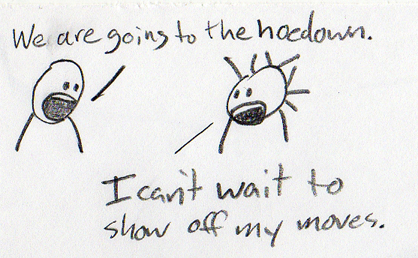 We are going to the hoedown.
I can't wait to
show off my moves.